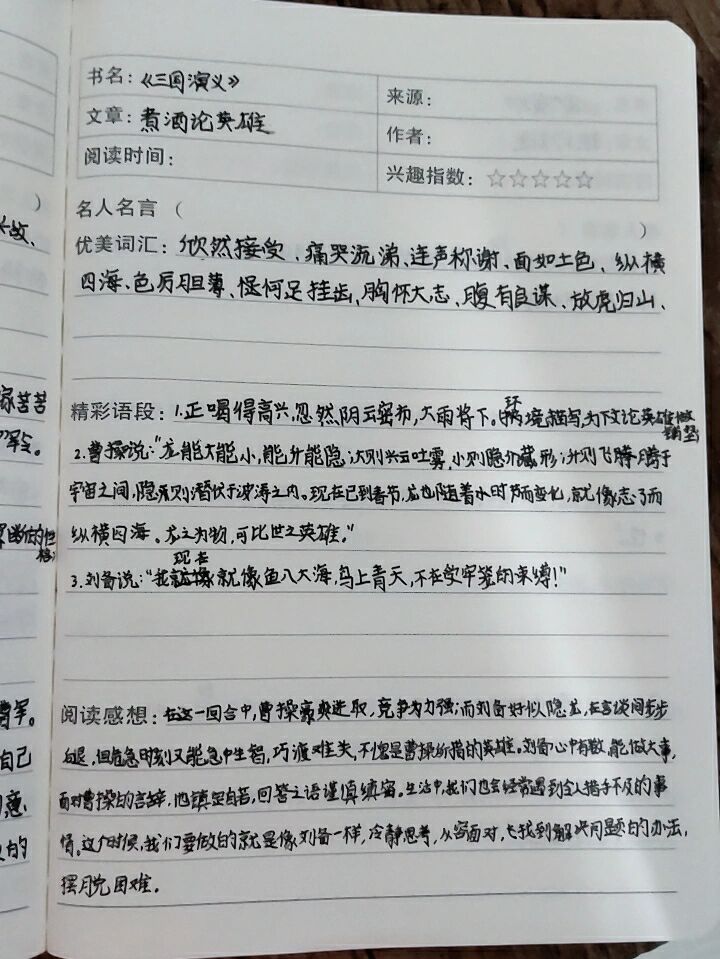 书名：《三国演义》 来源：
文章：煮酒论英雄 作者：
阅读时间： 兴趣指数：☆☆☆☆☆
名人名言（ ）
优美词汇：欣然接受、痛哭流涕、连声称谢、面如土色、纵横
四海、色厉胆薄、怪何足挂齿、胸怀大志、腹有良谋、放虎归山、
精彩语段：1.正喝得高兴，忽然阴云密布，大雨将下。环境描写，为下文论英雄做铺垫
2.曹操说："龙能大能小，能升能隐；大则兴云吐雾，小则隐介藏形；升则飞腾于
宇宙之间，隐则潜伏于波涛之内。现在已到春节，龙也随着水时节而变化，就像志了而
纵横四海。龙之为物，可比世之英雄。"
3.刘备说："我现在就像鱼入大海，鸟上青天，不在受牢笼的束缚！"
阅读感想：在这一回合中，曹操豪爽进取，竞争力强；而刘备好似隐龙，在言谈间步步
后退，但危急时刻又能急中生智，巧渡难关，不愧是曹操所指的英雄。刘备心中有数，能做大事，
面对曹操的言辞，他镇定自若，回答之语谨慎缜密。生活中，我们也会经常遇到令人措手不及的事
情。这个时候，我们要做的就是像刘备一样，冷静思考，从容面对，去找到解决问题的办法，
摆脱困难。